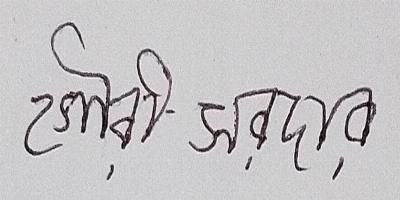 গৌরী সরদার